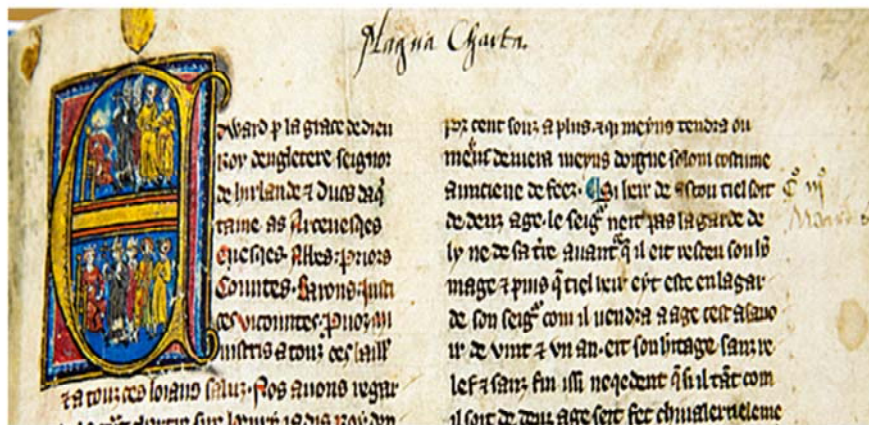 Magna Charta.
Edward p la grace de dieu
Roy dengletere seignor
de hirlande ⁊ ducs daq̃
taine as Arceuesq̃es
Euesq̃es. Abbes. priors
Countes. Barons. Justi
ces vicountes. prouos mi
nistris a touz ces baill
⁊ a touz ces loiaus saluz. Nos auons regar
por cent souz a plus. ⁊ qi meyns tendra ou
meins deuera meyns doigne solom costume
aunciene de feez. ¶ Si heir de ascou tiel soit
de deuz age. le seigͬ neit pas la garde de
ly ne de sa tre auant q̃ il eit resceu son hõ
mage ⁊ puis q̃ tiel heir eyt este en la gar
de son seigͬ com il uendra a age cest a sauo
ir de vint ⁊ vn an. eit son h'itage sanz re
lef ⁊ sanz fin issi neqedent q̃ si il tãt com
il soit de deuz age seit fet chiualer